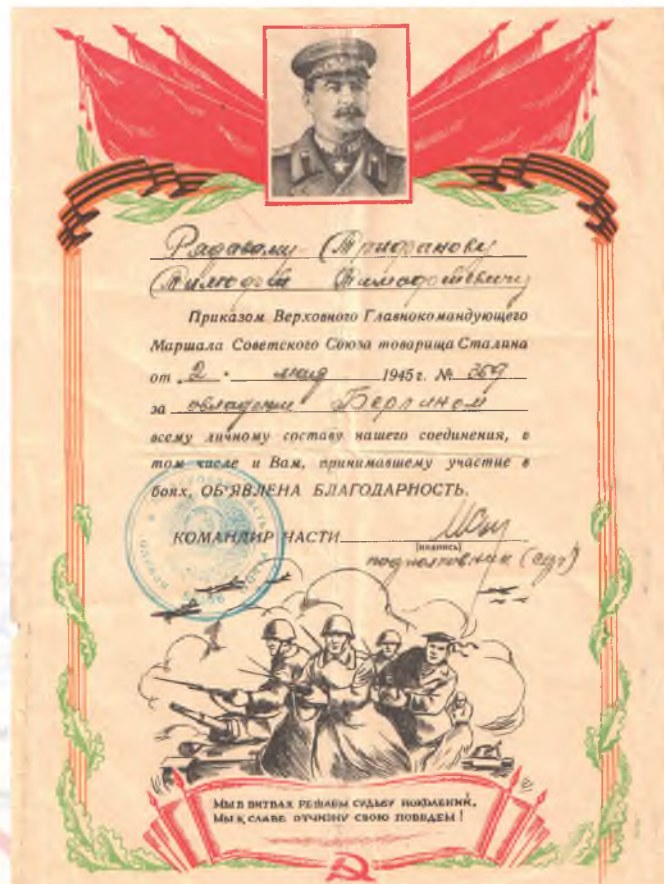 Рядавому Трифанову
Тимофею Тимофеевичу
Приказом Верховного Главнокомандующего
Маршала Советского Союза товарища Сталина
от 2. мая 1945 г. № 359
за овладение Берлином
всему личному составу нашего соединения, в
том числе и Вам, принимавшему участие в
боях, ОБ'ЯВЛЕНА БЛАГОДАРНОСТЬ.
КОМАНДИР ЧАСТИ
(подпись)
подполковник
МЫ В БИТВАХ РЕШАЕМ СУДЬБУ ПОКОЛЕНИЙ,
МЫ К СЛАВЕ ОТЧИЗНУ СВОЮ ПОВЕДЕМ!